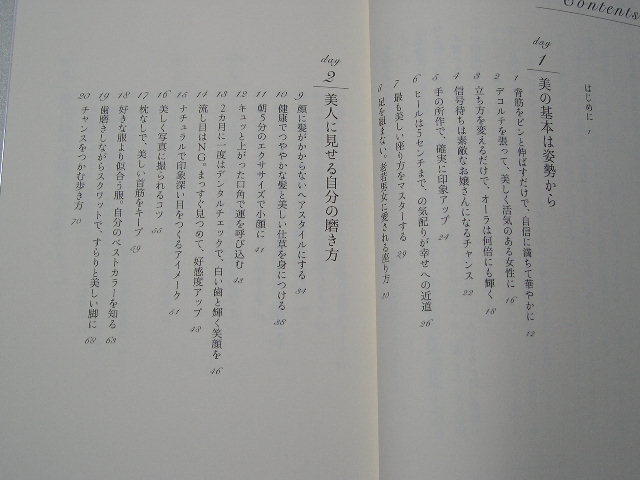 Contents
はじめに 1
day 1 美の基本は姿勢から
1 背筋をピンと伸ばすだけで、自信に満ちて華やかに 12
2 デコルテを張って、美しく活気のある女性に 16
3 立ち方を変えるだけで、オーラは何倍にも輝く 18
4 信号待ちは素敵なお嬢さんになるチャンス 22
5 手の所作で、確実に印象アップ 24
6 ヒールは5センチまで、の気配りが幸せへの近道 26
7 最も美しい座り方をマスターする 29
8 足を組まない。老若男女に愛される座り方
day 2 美人に見せる自分の磨き方
9 顔に髪がかからないヘアスタイルにする 34
10 健康でつややかな髪と美しい仕草を身につける 38
11 朝5分のエクササイズで小顔に 41
12 キュッと上がった口角で運を呼び込む 43
13 2カ月に一度はデンタルチェックで、白い歯と輝く笑顔を 46
14 流し目はNG。まっすぐ見つめて、好感度アップ
15 ナチュラルで印象深い目をつくるアイメーク 51
16 美しく写真に撮られるコツ 55
17 枕なしで、美しい首筋をキープ 59
18 好きな服より似合う服。自分のベストカラーを知る 63
19 歯磨きしながらスクワットで、すらりと美しい脚に
20 チャンスをつかむ歩き方 70